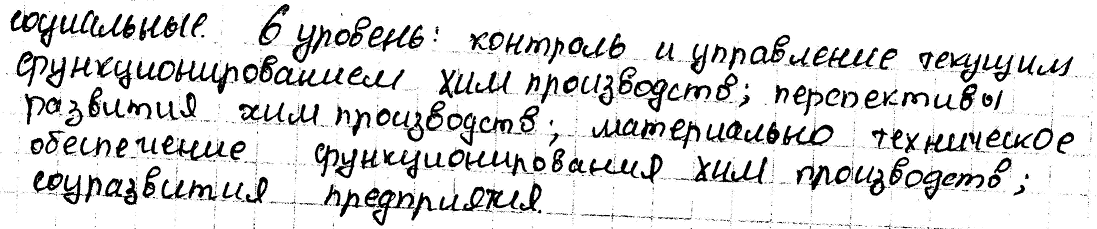 социальные. 6 уровень: контроль и управление текущим
функционированием хим производств; перспективы
развития хим производств; материально техническое
обеспечение функционирования хим производств;
соцразвития предприятия.